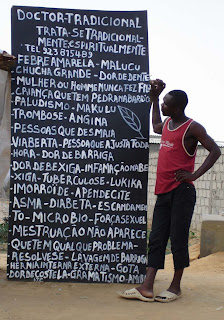 DOCTOR-TRADICIONAL
TRATA-SE TRADICIONAL-
MENTE ESPIRITUALMENTE
TEL 923 615489
FEBRE AMARELA - MALUCU
CHUCHA GRANDE - DOR DE DENTE
MULHER OU HOMEM NUNCA FEZ FILHO
CRIANÇA QUE TEM PEDRA NA BARRIGA
PALUDISMO - MAKULU
TROMBOSE - ANGINA
PESSOAS QUE DESMAIA
VIA BERTA - PESSOA QUE AJUSTA TODA
HORA - DOR DE BARRIGA
DOR DE BEXIGA - INFAMAÇÃO NA BE
XIGA - TUBERCULOSE - LUKIKA
IMORROIDE - APENDECITE
ASMA - DIABETA - ESCAMAMEN
TO - MICROBIO - FORCA SEXUAL
MESTRUAÇÃO NÃO APARECE
QUE TEM QUALQUE PROBLEMA
RESOLVE-SE - LAVAGEM DE BARRIGA
HERNIA INTERNA EXTERNA - GOTA
DOR DE COSTELA - GRAMATISMO